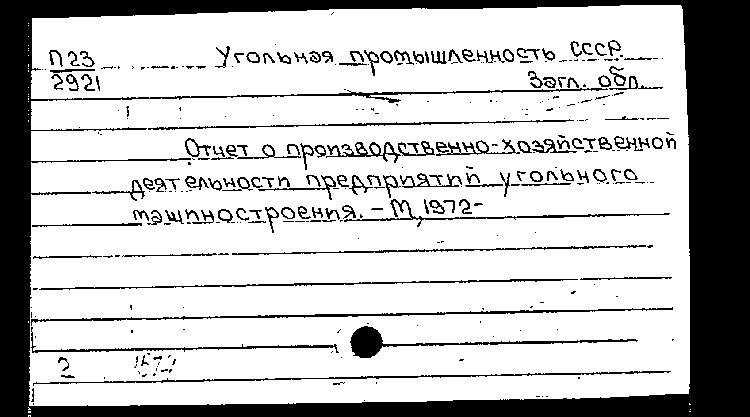 П23 Угольная промышленность СССР.
2921 Загл. обл.
Отчет о производственно-хозяйственной
деятельности предприятий угольного
машиностроения. – М, 1972-
2